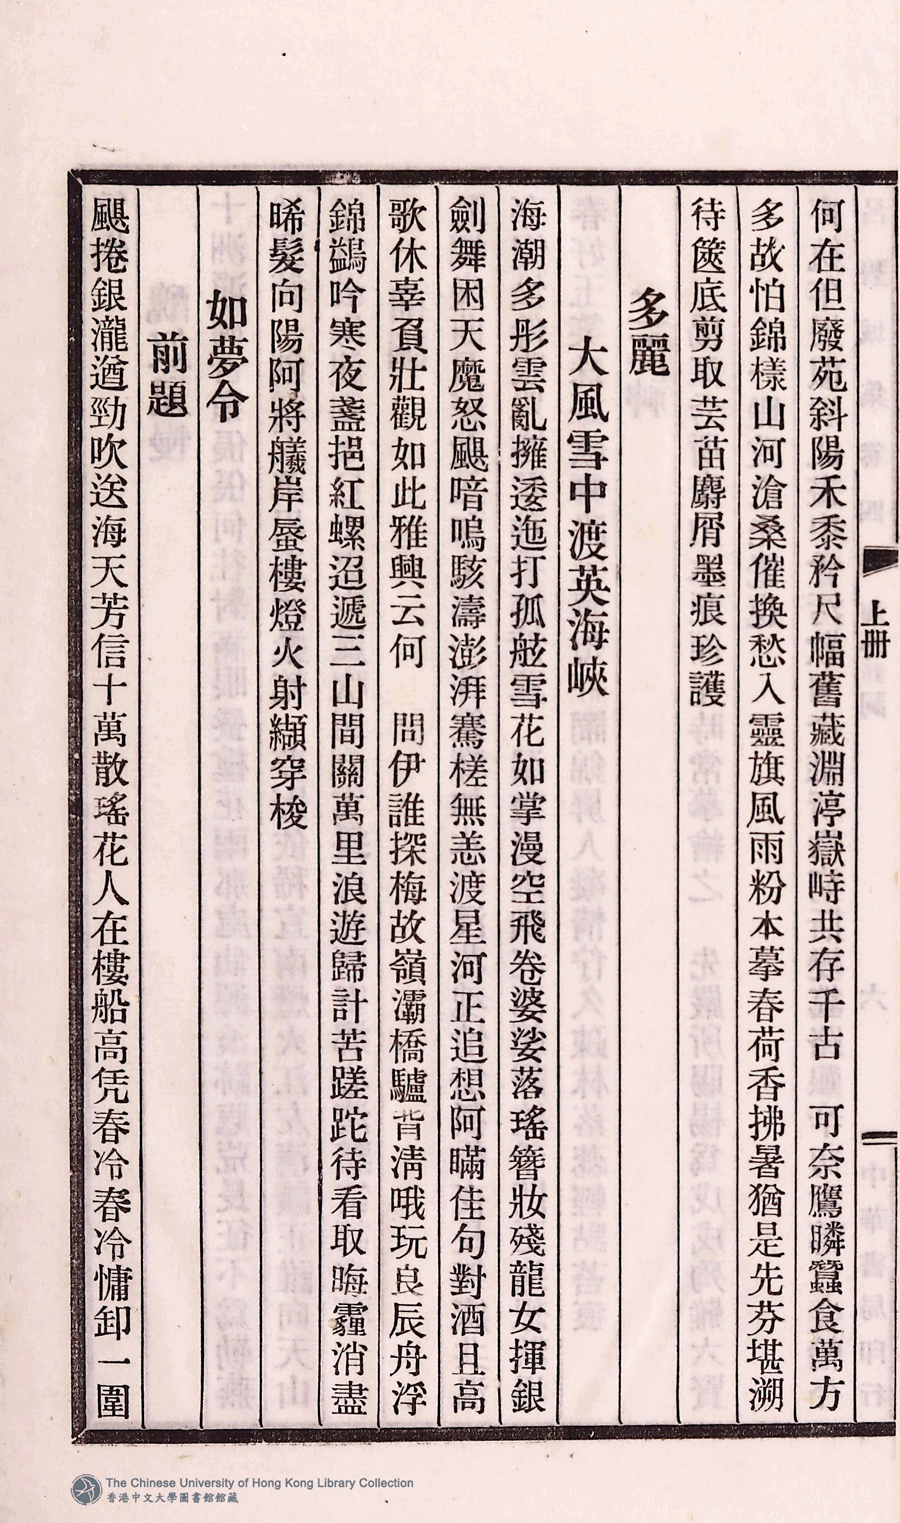 何在但廢苑斜陽禾黍矜尺幅舊藏淵渟嶽峙共存千古　可奈鷹瞵蠶食萬方
多故怕錦樣山河滄桑催換愁入靈旗風雨粉本摹春荷香拂暑猶是先芬堪溯
待篋底剪取芸苗麝屑墨痕珍護
多麗
大風雪中渡英海峽
海潮多彤雲亂擁逶迤打孤舷雪花如掌漫空飛卷婆娑落瑤簪妝殘龍女揮銀
劍舞困天魔怒颶喑嗚駭濤澎湃騫槎無恙渡星河正追想阿瞞佳句對酒且高
歌休辜負壯觀如此雅興云何　問伊誰探梅故嶺灞橋驢背淸哦玩良辰舟浮
錦鷁吟寒夜盞挹紅螺迢遞三山間關萬里浪遊歸計苦蹉跎待看取晦霾消盡
晞髮向陽阿將艤岸蜃樓燈火射纈穿梭
如夢令
前題
颶捲銀瀧遒勁吹送海天芳信十萬散瑤花人在樓船高凭春冷春冷慵卸一圍
上冊
The Chinese University of Hong Kong Library Collection
香港中文大學圖書館館藏